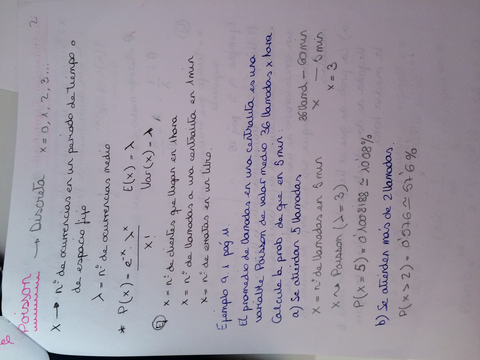 Poisson → Discreta x = 0, 1, 2, 3... 2
X → nº de ocurrencias en un periodo de tiempo o
de espacio fijo
λ = nº de ocurrencias medio
* P(x) = e^-x · λ^x / x! E(x) = λ
Var(x) = λ
Ej x = nº de clientes que llegan en 1 hora
x = nº de llamadas a una centralita en 1 min
x = nº de erratas en un libro.
Ejemplo 9.1 pág 11
El promedio de llamadas en una centralita es una
variable Poisson de valor medio 36 llamadas x hora
Calcule la prob de que en 5 min
a) Se atiendan 5 llamadas
36 llamd — 60 min
x — 5 min
x = 3
X = nº de llamadas en 5 min
X ~ Poisson (λ = 3)
P(x = 5) = 0'1008188 ≈ 10'08%
b) Se atienden más de 2 llamadas.
P(x > 2) = 0'576 ≈ 57'6%
el